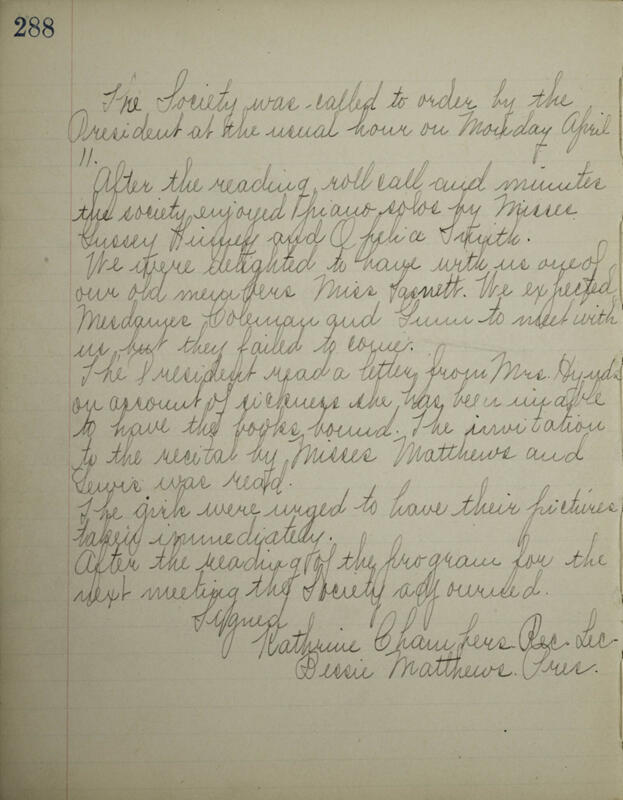 288
The Society was called to order by the
President at the usual hour on Monday April
11.
After the reading, roll call and minutes
the society enjoyed piano solos by Misses
and Ophelia Smith.
We were delighted to have with us one of
our old members Miss Sasnett. We expected
Mesdames Coleman and Gunn to meet with
us, but they failed to come.
The President read a letter from Mrs. Hynds
on account of sickness she has been unable
to have the books bound. The invitation
to the recital by Misses Matthews and
Lewis was read.
The girls were urged to have their pictures
taken immediately.
After the reading of the program for the
next meeting the Society adjourned.
Signed
Kathrine Chambers. Rec. Sec.
Bessie Matthews. Pres.